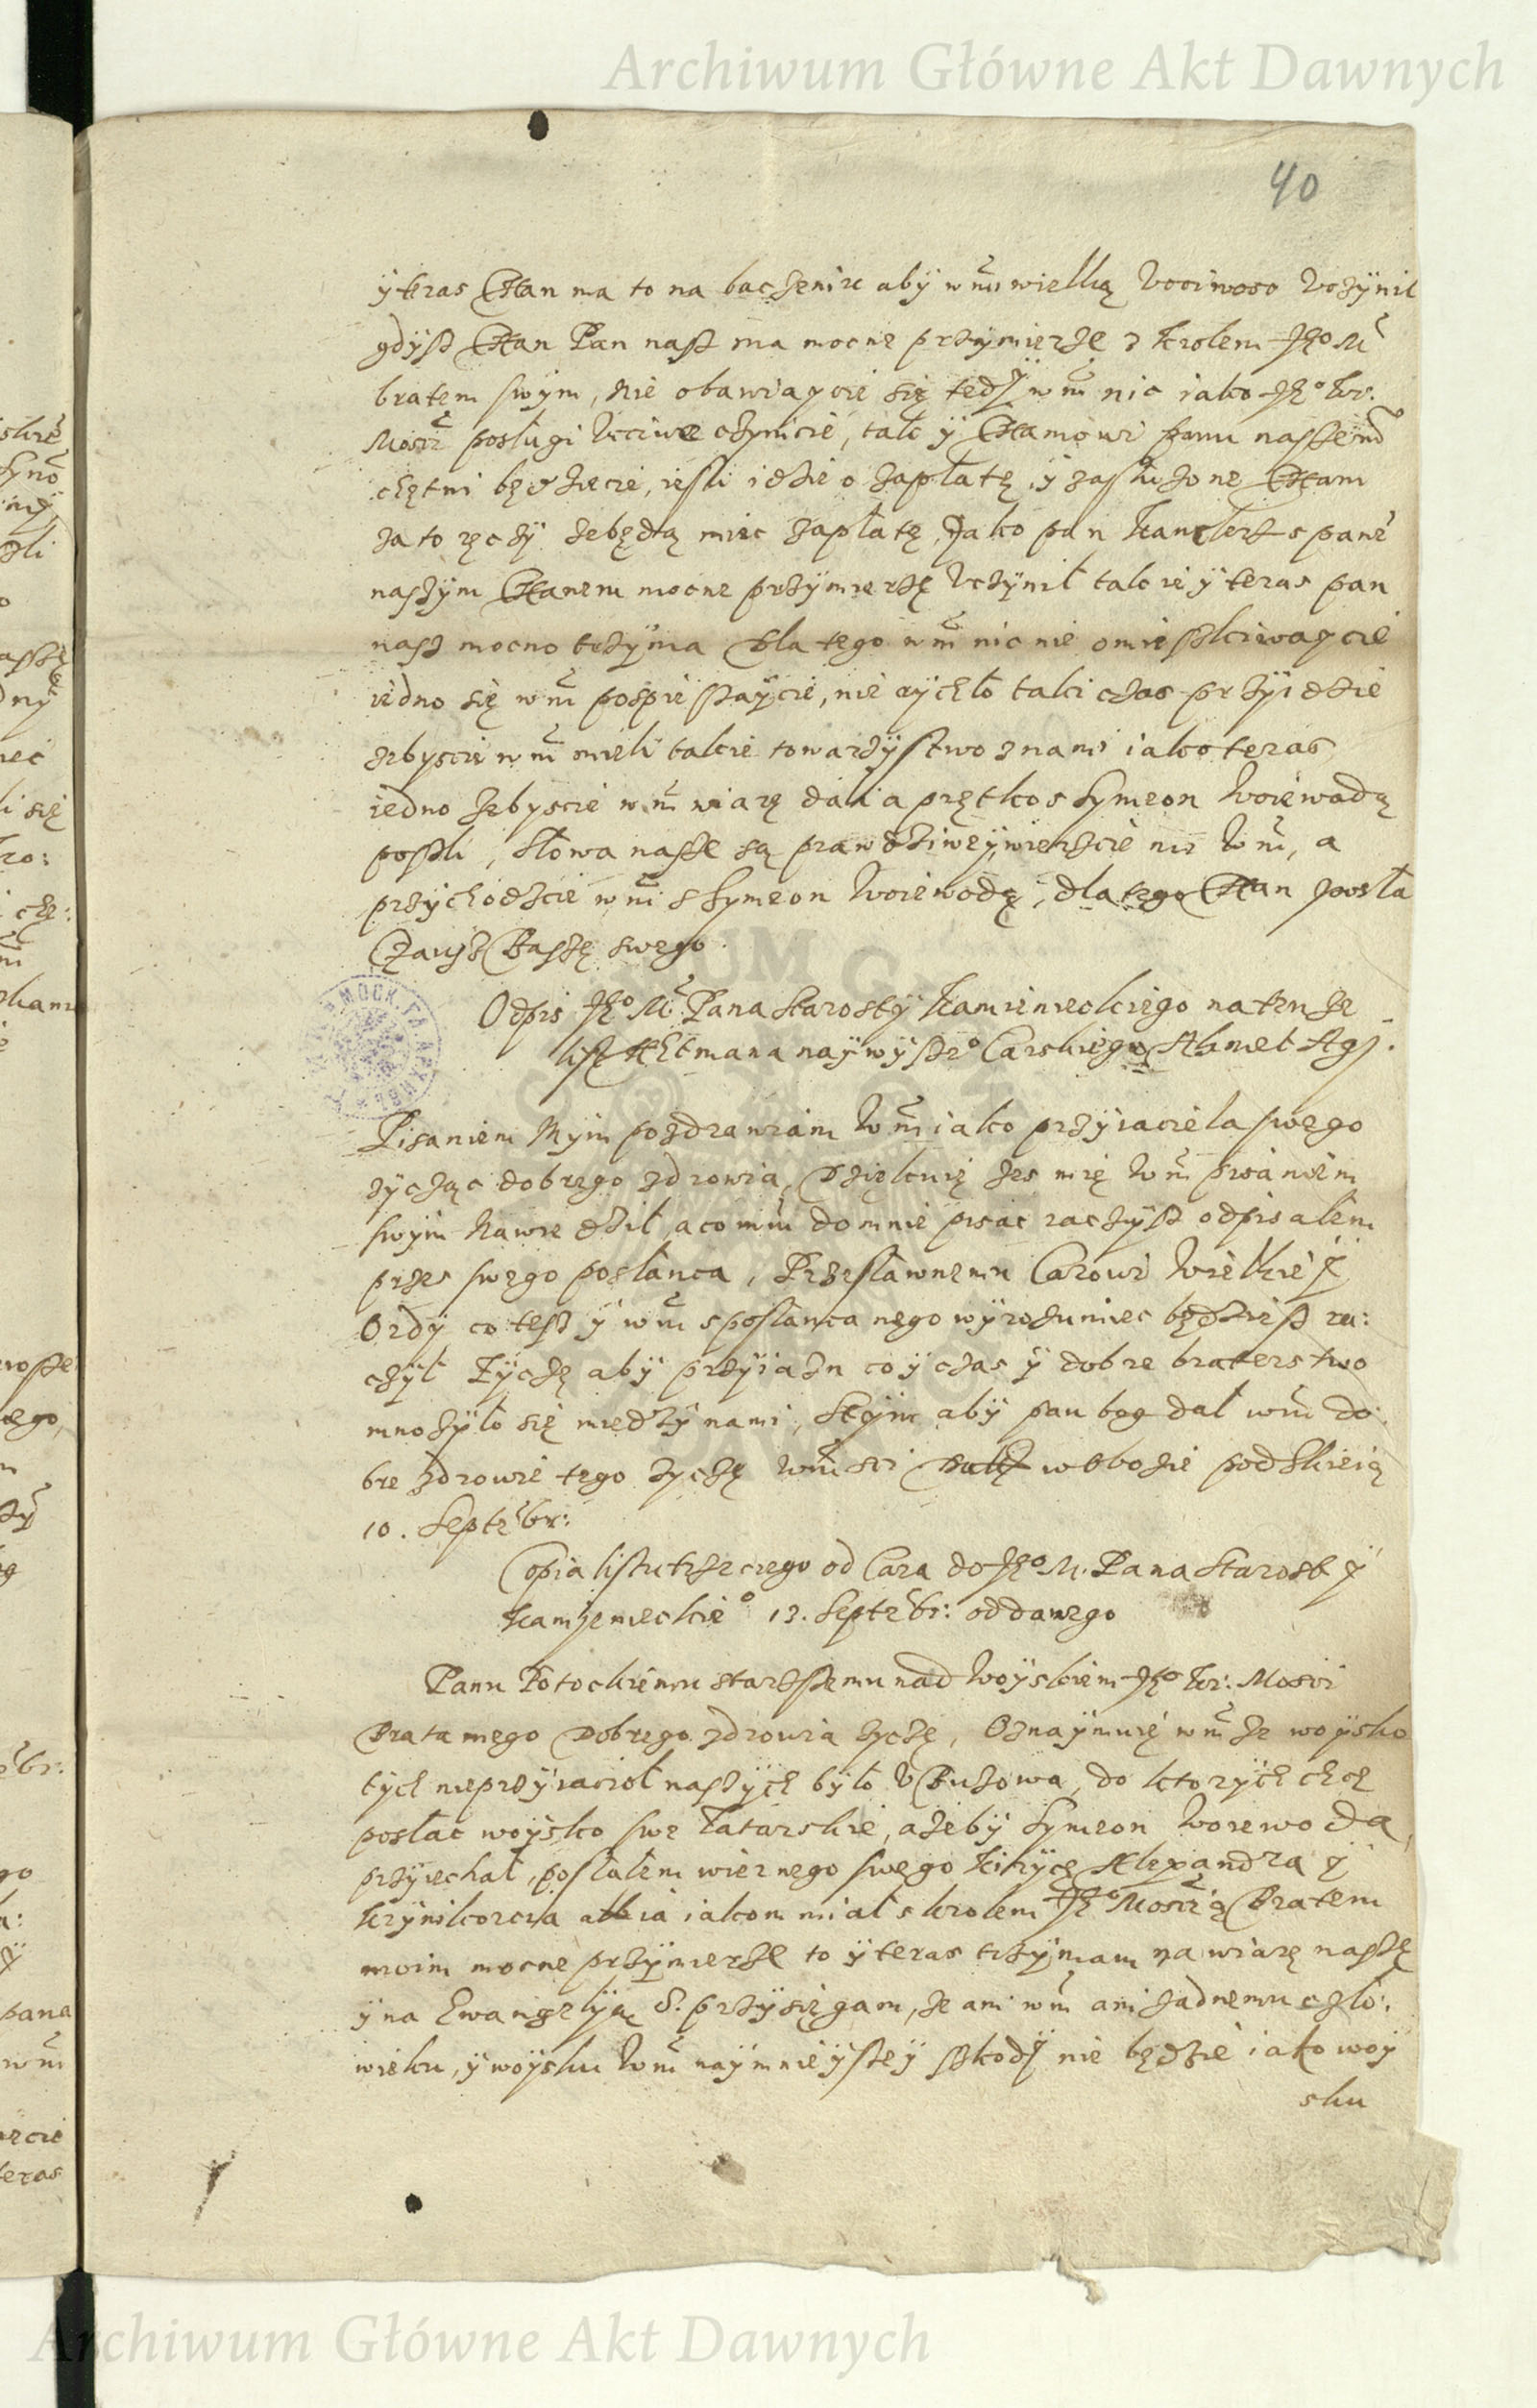 Archiwum Główne Akt Dawnych
40
ÿ teras Chan ma to na baczeniu abÿ wm̃ wielką vcciwosc vczÿnił
gdÿsz Chan Pan nasz ma mocne przymierze z Krolem Je° Mc̃
bratem swÿm, nie obawiaycie się tedÿ wm̃ nic iako Je° Kr:
Mosci posługi vcciwe czynicie, tak ÿ Chamowi panu naszemu
chętni będziecie, iesli idzie o zapłatę, ÿ zasłuzone Cham
za to ręczÿ ze będą miec zapłatę, Jako pan Kanclerz s pane
naszym Chanem mocne przÿmierze vczÿnił takie ÿ teras pan
nasz mocno trzÿma dla tego wm̃ nic nie omieszkiwaycie
iedno się wm̃ pospieszaÿcie, nie rÿchło taki czas przÿidzie
zebyscie wm̃ mieli takie towarzÿstwo z nami iako teras
iedno zebyscie wm̃ wiarę dali a prętko s Symeon Woiewodą
poszli, słowa nasze są prawdziwe, wierzcie nis wm̃, a
przÿchodzcie wm̃ s Symeon Woiewodą, dla tego Chan posła
Czausz Baszę swego.
Odpis Je° Mc̃ Pana Starostÿ Kamienieckiego na ten ze
list Hetmana naÿwÿsze° Carskiego Ahmet Agi.
Pisaniem Mÿm pozdrawiam wm̃ iako przÿiaciela swego
zÿcząc dobrego zdrowia, Dziękuię zes mię wm̃ pisaniem
swÿm nawiedził, a co wm̃ do mnie pisac raczÿsz odpisałem
przes swego posłanca, Przesławnemu Carowi Wielkieÿ
Ordÿ co tesz ÿ wm̃ s posłanca nego wÿrozumiec będziesz ra:
czÿł Zÿczę abÿ przÿiazn co ÿ czas ÿ dobre braterstwo
mnozÿło się miedzÿ nami, S tÿm abÿ pan bog dał wm̃ do:
bre zdrowie tego zyczę wm̃sci w obozie pod Skieią
10. Septẽbr:
Copia listu trzeciego od Cara do Je° M. Pana Starostÿ
Kamienieckie° 13. Septẽbr: oddanego
Panu Potockiemu starszemu nad Woÿskiem Je° Kr: Mosci
Brata mego Dobrego zdrowia zyczę, Oznaÿmuię wm̃ ze woÿsko
tÿch nieprzÿiacioł naszÿch było v Buzowa, do ktorÿch chcę
posłac woÿsko swe Tatarskie, a zebÿ Symeon Woiewoda
przÿiechał, posłałem wiernego swego Kirÿcę Alexandra ÿ
Krÿnikorcia a ia iakom miał s krolem Je° Moscią Bratem
moim mocne przÿmierze to ÿ teras trzÿmam na wiarę naszę
ÿ na Ewangelÿą S. przÿsięgam, ze ani wm̃ ani zadnemu czło:
wieku, ÿ woÿsku wm̃ naÿmnieÿszeÿ szkodÿ nie będzie iako woÿ
sku
Archiwum Główne Akt Dawnych